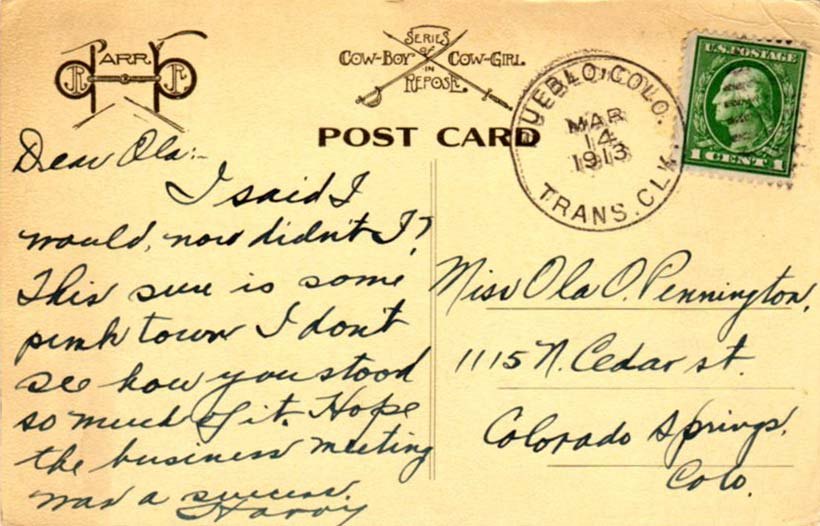 PARRY
SERIES
OF
COW-BOY COW-GIRL
IN
REPOSE
POST CARD
PUEBLO, COLO.
MAR
14
1913
TRANS. CLK.
U.S. POSTAGE
1 CENT 1
Dear Ola:-
I said I
would, now didn't I?
This sure is some
punk town I don't
see how you stood
so much of it. Hope
the business meeting
was a success.
Harry
Miss Ola O. Pennington,
1115 N. Cedar st.
Colorado Springs,
Colo.